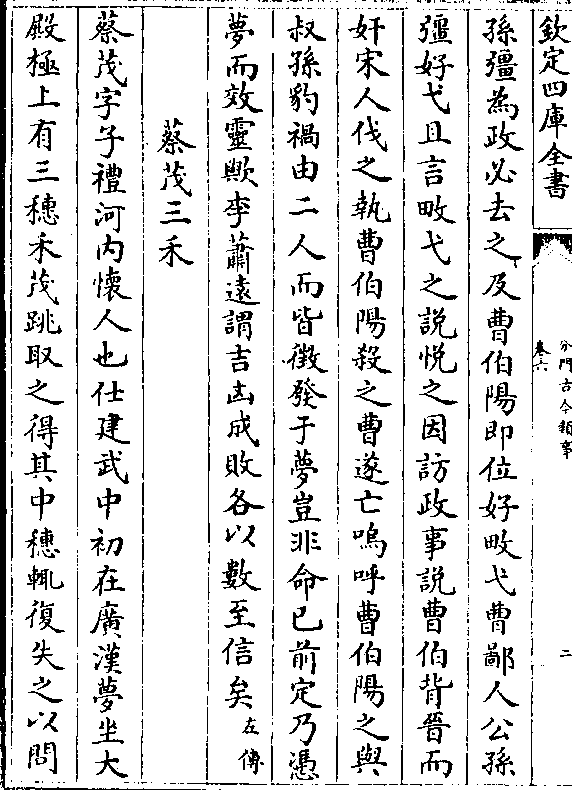 欽定四庫全書
分門古今類事
卷六
二
孫彊為政必去之及曹伯陽即位好畋弋曹鄙人公孫
彊好弋且言畋弋之説悦之因訪政事説曹伯背晉而
奸宋人伐之執曹伯陽殺之曹遂亡嗚呼曹伯陽之與
叔孫豹禍由二人而皆徴發于夢豈非命已前定乃憑
夢而效靈歟李蕭遠謂吉凶成敗各以數至信矣左傳
蔡茂三禾
蔡茂字子禮河内懷人也仕建武中初在廣漢夢坐大
殿極上有三穗禾茂跳取之得其中穗輒復失之以問